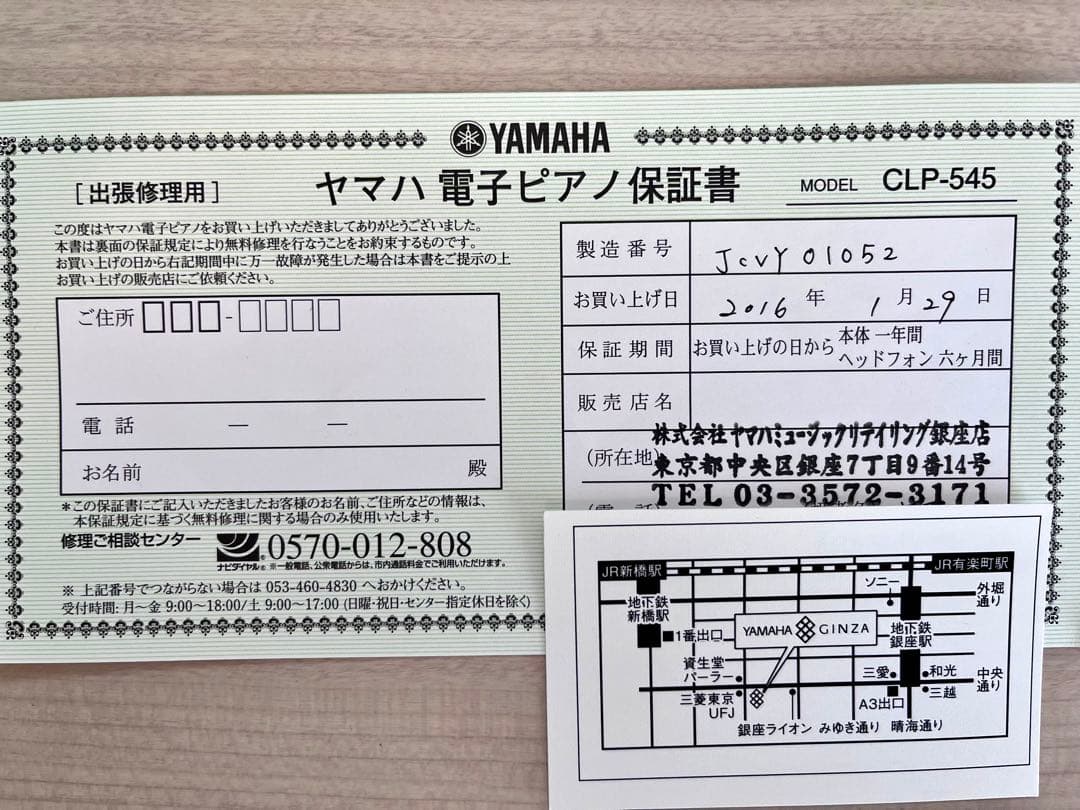 YAMAHA
[出張修理用]
ヤマハ 電子ピアノ保証書
MODEL CLP-545
この度はヤマハ電子ピアノをお買い上げいただきましてありがとうございました。
本書は裏面の保証規定により無料修理を行なうことをお約束するものです。
お買い上げの日から右記期間中に万一故障が発生した場合は本書をご提示の上
お買い上げの販売店にご依頼ください。
ご住所 □□□-□□□□
電話 — —
お名前 殿
*この保証書にご記入いただきましたお客様のお名前、ご住所などの情報は、
本保証規定に基づく無料修理に関する場合のみ使用いたします。
修理ご相談センター ナビダイヤル® 0570-012-808
※一般電話、公衆電話からは、市内通話料金でご利用いただけます。
※ 上記番号でつながらない場合は 053-460-4830 へおかけください。
受付時間: 月〜金 9:00〜18:00/土 9:00〜17:00 (日曜・祝日・センター指定休日を除く)
製造番号 JCVY 01052
お買い上げ日 2016 年 1 月 29 日
保証期間 お買い上げの日から 本体 一年間
ヘッドフォン 六ヶ月間
販売店名
株式会社ヤマハミュージックリテイリング銀座店
(所在地) 東京都中央区銀座7丁目9番14号
TEL 03-3572-3171
JR新橋駅
JR有楽町駅
ソニー
外堀通り
地下鉄新橋駅
1番出口
YAMAHA GINZA
地下鉄銀座駅
資生堂パーラー
三愛
和光
中央通り
三菱東京UFJ
A3出口
三越
銀座ライオン みゆき通り 晴海通り